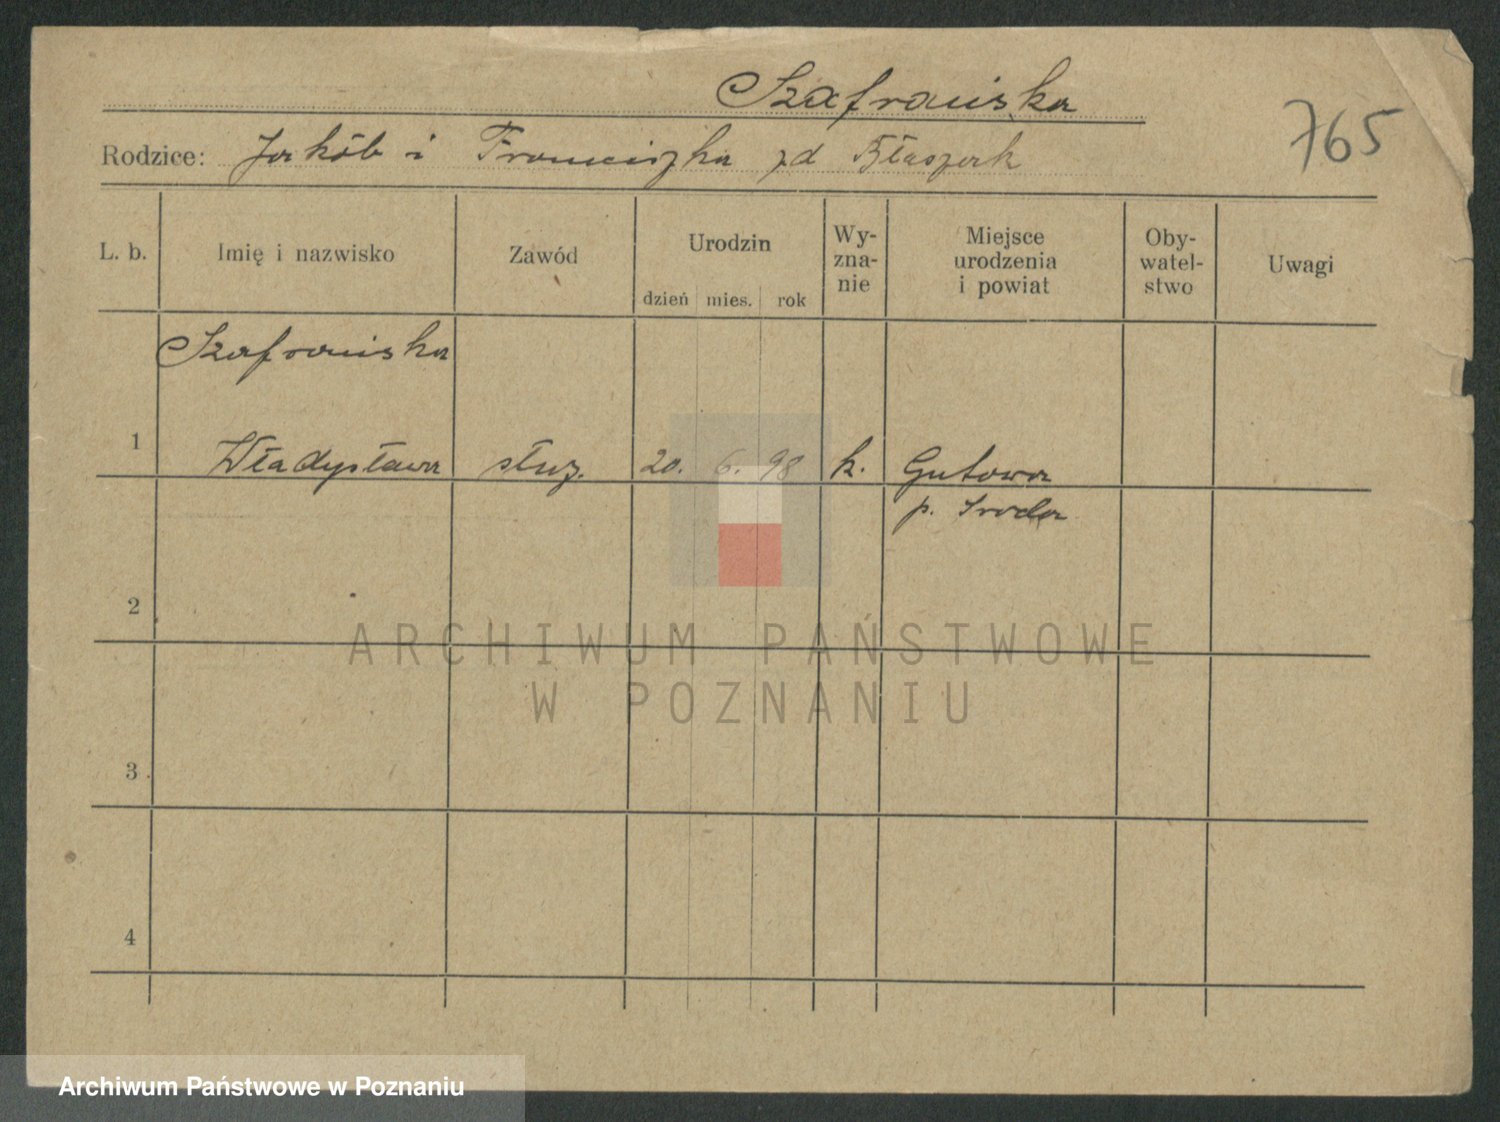 Szafrańska
765
Rodzice: Jakób i Franciszka zd Błaszak
L. b.
Imię i nazwisko
Zawód
Urodzin
dzień mies. rok
Wy-
zna-
nie
Miejsce
urodzenia
i powiat
Oby-
watel-
stwo
Uwagi
Szafrańska
1 Władysława służ. 20. 6. 98 k. Gutowa
p. Środa
2
3
4
ARCHIWUM PAŃSTWOWE
W POZNANIU
Archiwum Państwowe w Poznaniu